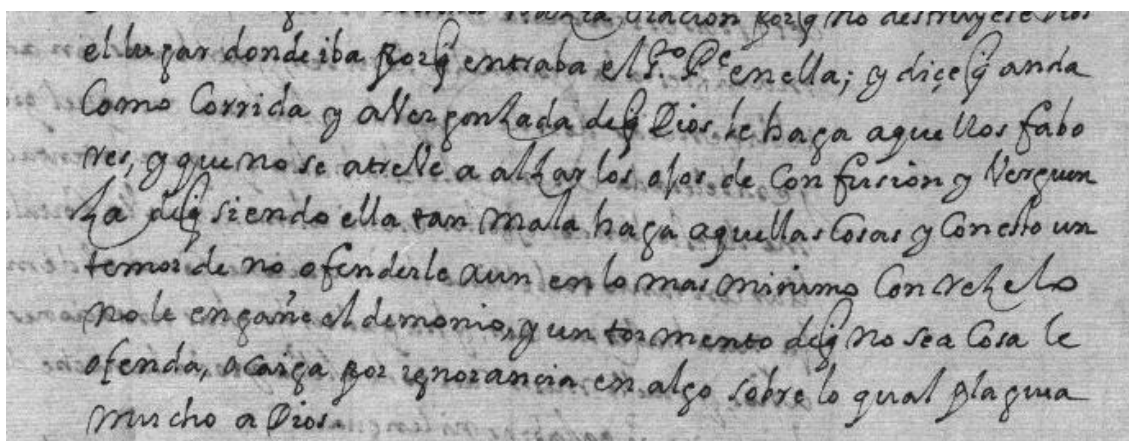 oracion porq no destruyese Dios
el lugar donde iba porq entraba el Sto Pe en ella; y diçe q anda
Como Corrida y aVergonzada de q Dios le haga aquellos fabo
res, y que no se atreVe a alzar los ojos de Confusion y Verguen
za de q siendo ella tan mala haga aquellas Cosas y Con esto un
temor de no ofenderle aun en lo mas minimo Con rezelo
no le engañe el demonio, y un tormento de q no sea Cosa le
ofenda, o caiga por ignorancia en algo sobre lo qual plaguea
mucho a Dios.